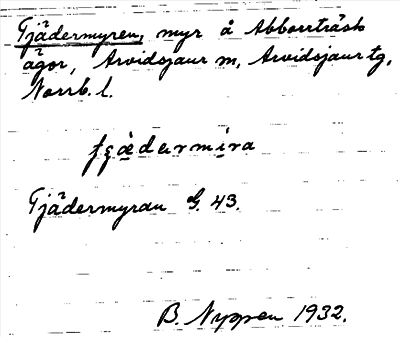 Tjädermyren, myr å Abborrträsk
ägor, Arvidsjaur sn, Arvidsjaur tg,
Norrb. l.
Tjädermyran G. 43.
B. Nyman 1932.